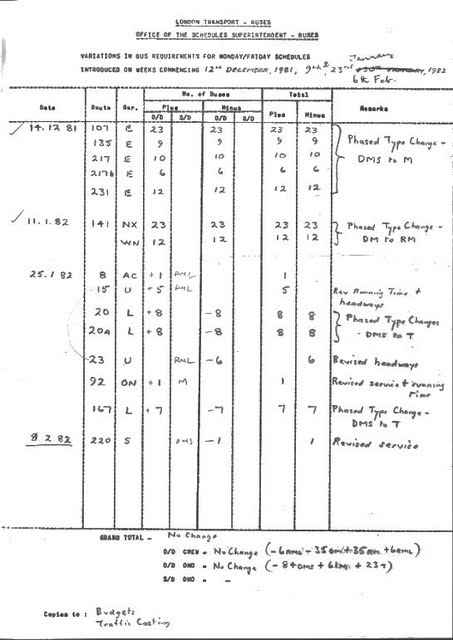 LONDON TRANSPORT - BUSES
OFFICE OF THE SCHEDULES SUPERINTENDENT - BUSES
VARIATIONS IN BUS REQUIREMENTS FOR MONDAY/FRIDAY SCHEDULES
January
INTRODUCED ON WEEKS COMMENCING 12th December, 1981, 9th & 23rd 1982
6th Feb.
No. of Buses Total
Date Route Gar. Plus Minus Plus Minus Remarks
O/D S/D O/D S/D
14.12.81 107 E 23 23 23 23 Phased Type Change -
135 E 9 9 9 9 DMS to M
217 E 10 10 10 10
217B E 6 6 6 6
231 E 12 12 12 12
11.1.82 141 NX 23 23 23 23 Phased Type Change -
WN 12 12 12 12 DM to RM
25.1.82 8 AC +1 RML 1
15 U +5 RML 5 Rev Running Time +
headways
20 L +8 -8 8 8 Phased Type Changes
20A L +8 -8 8 8 - DMS to T
23 U RML -6 6 Revised headways
92 ON +1 M 1 Revised service + running
time
167 L +7 -7 7 7 Phased Type Change -
DMS to T
8.2.82 220 S DMS -1 1 Revised service
GRAND TOTAL - No Change
O/D CREW - No Change (-6RML - 35DM + 35RM + 6RML)
O/D OMO - No Change (-84DMS + 61M + 23T)
S/D OMO - -
Copies to : Budgets
Traffic Costing